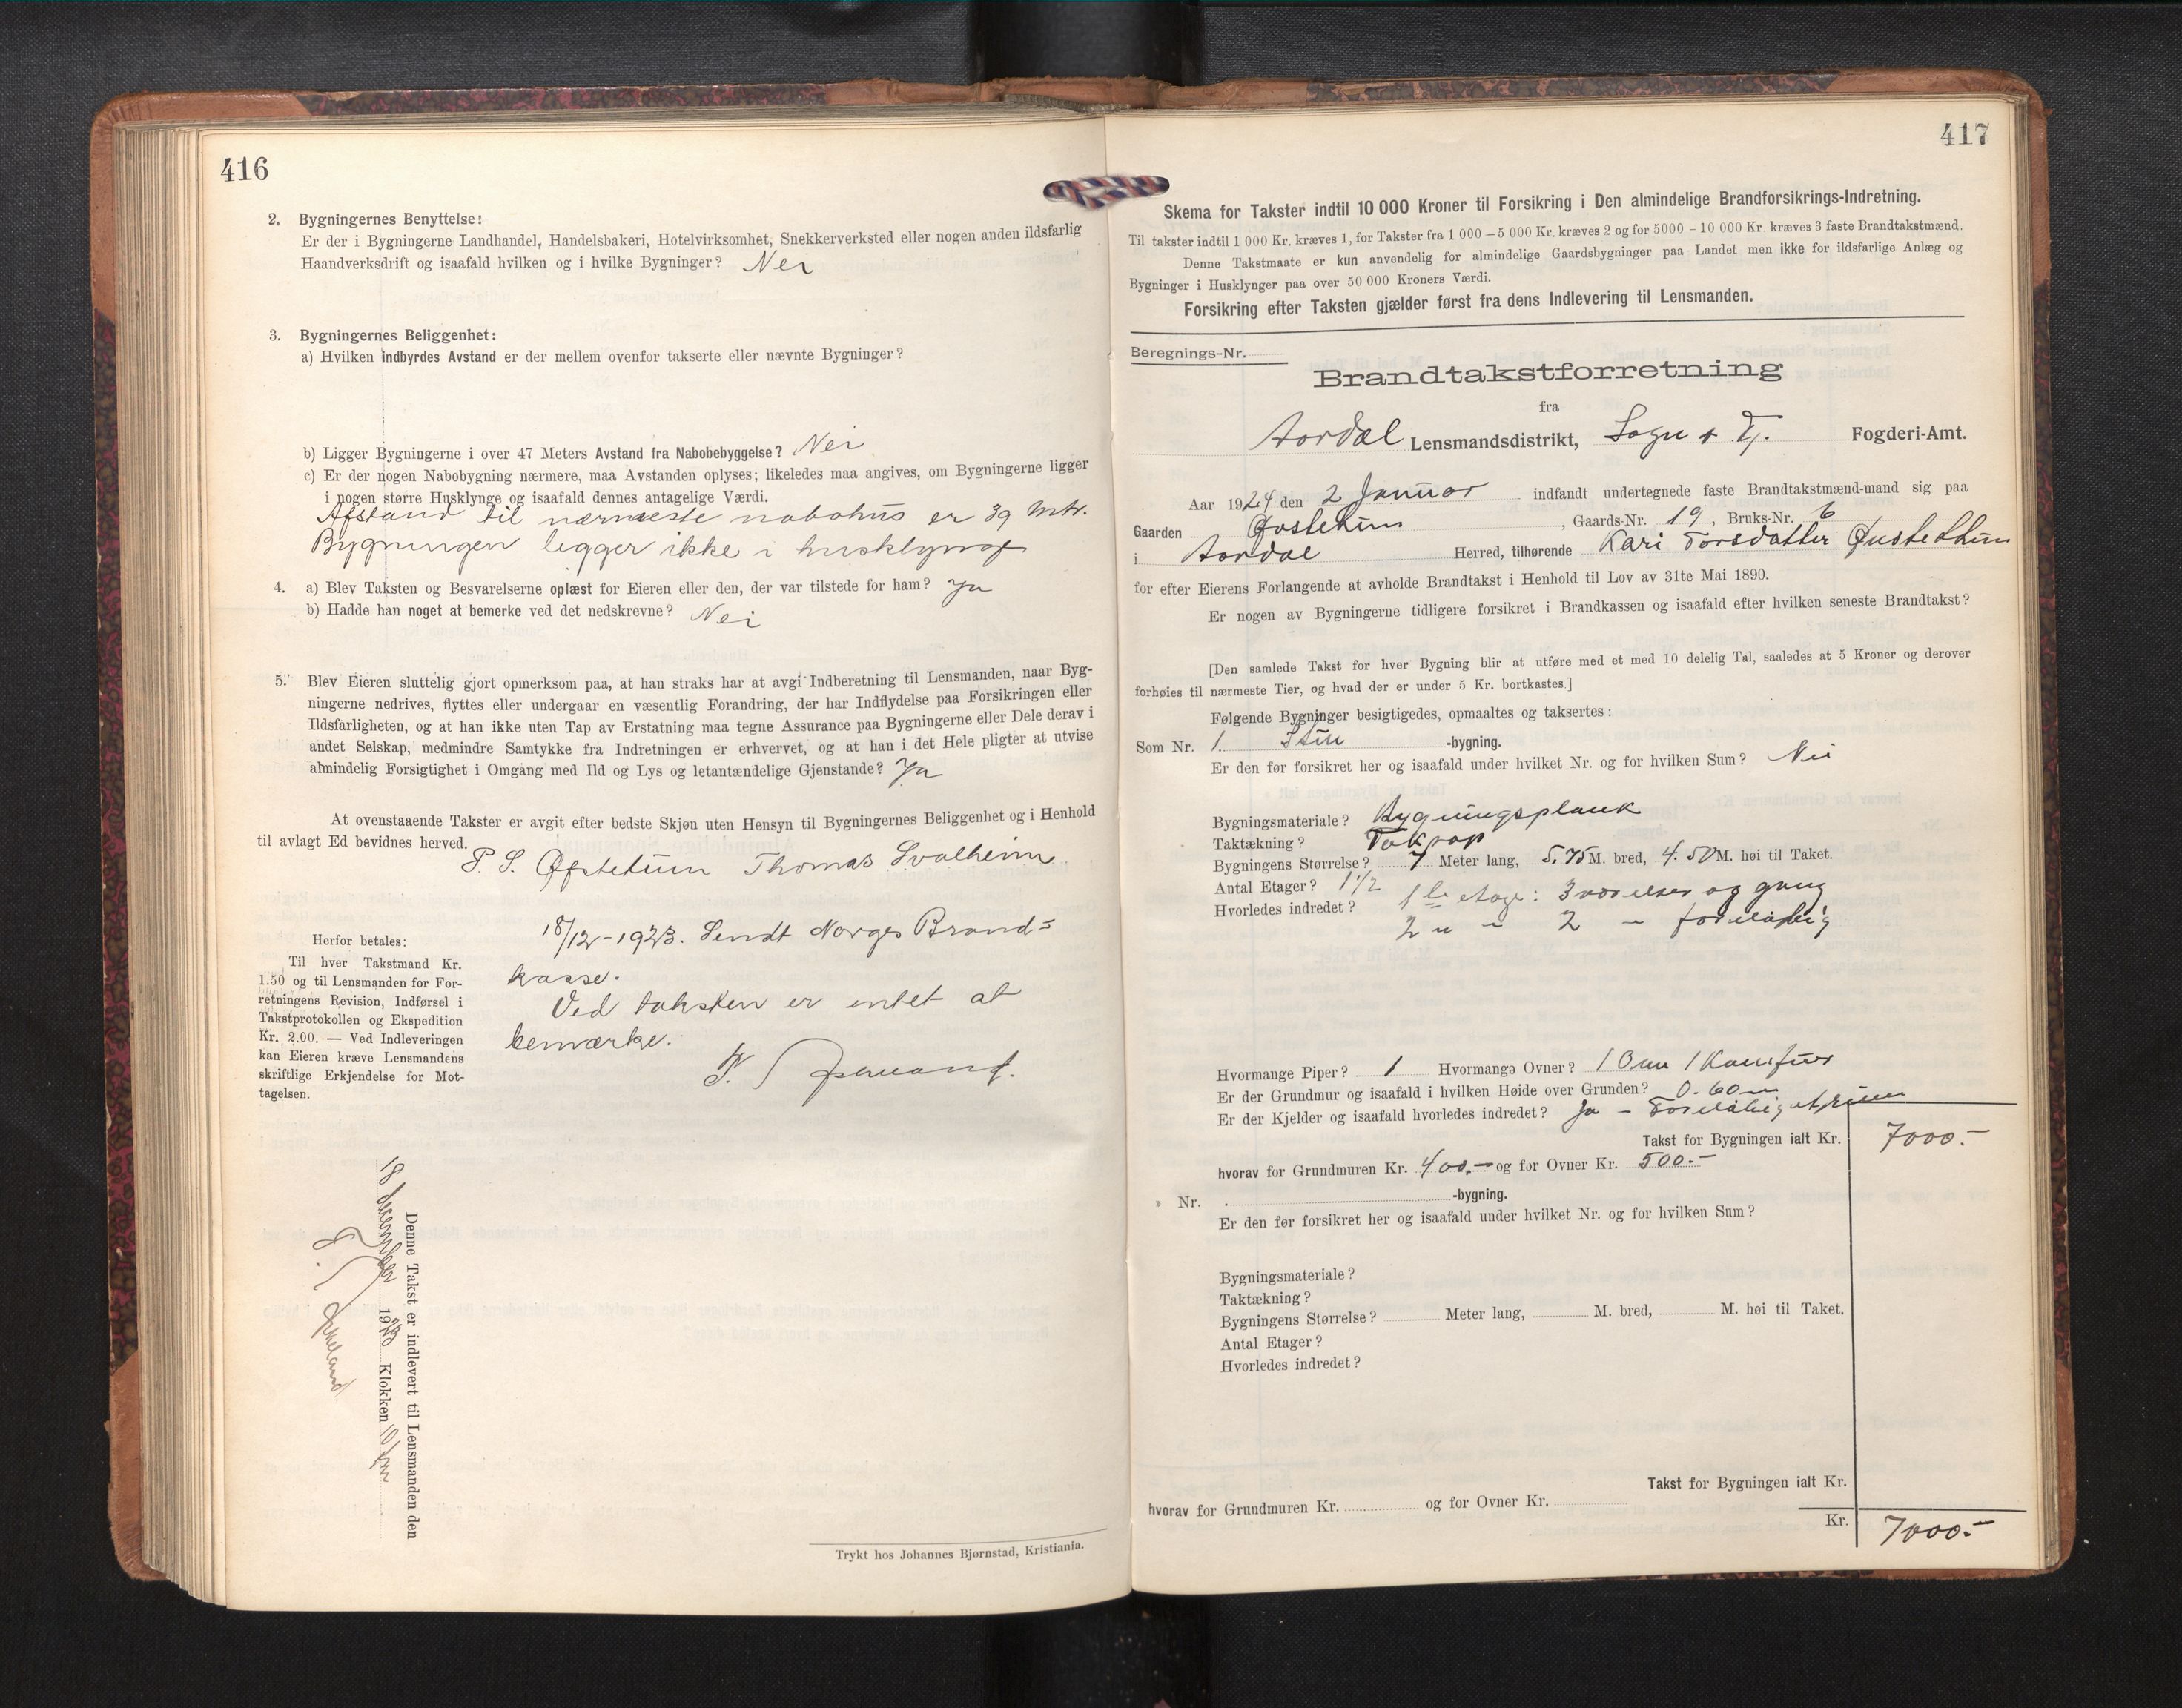 416
2. Bygningernes Benyttelse:
Er der i Bygningerne Landhandel, Handelsbakeri, Hotelvirksomhet, Snekkerverksted eller nogen anden ildsfarlig
Haandverksdrift og isaafald hvilken og i hvilke Bygninger? Nei
3. Bygningernes Beliggenhet:
a) Hvilken indbyrdes Avstand er der mellem ovenfor takserte eller nævnte Bygninger?
b) Ligger Bygningerne i over 47 Meters Avstand fra Nabobebyggelse? Nei
c) Er der nogen Nabobygning nærmere, maa Avstanden oplyses; likeledes maa angives, om Bygningerne ligger
i nogen større Husklynge og isaafald dennes antagelige Værdi.
Afstand til nærmeste nabohus er 39 mtr.
Bygningen legger ikke i husklynge
4. a) Blev Taksten og Besvarelserne oplæst for Eieren eller den, der var tilstede for ham? Ja
b) Hadde han noget at bemerke ved det nedskrevne? Nei
5. Blev Eieren sluttelig gjort opmerksom paa, at han straks har at avgi Indberetning til Lensmanden, naar Byg-
ningerne nedrives, flyttes eller undergaar en væsentlig Forandring, der har Indflydelse paa Forsikringen eller
Ildsfarligheten, og at han ikke uten Tap av Erstatning maa tegne Assurance paa Bygningerne eller Dele derav i
andet Selskap, medmindre Samtykke fra Indretningen er erhvervet, og at han i det Hele pligter at utvise
almindelig Forsigtighet i Omgang med Ild og Lys og letantændelige Gjenstande? Ja
At ovenstaaende Takster er avgit efter bedste Skjøn uten Hensyn til Bygningernes Beliggenhet og i Henhold
til avlagt Ed bevidnes herved.
P. S. Øfstetun Thomas Svalheim
18/12-1923. Sendt Norges Brand=
kasse.
Ved taksten er intet at
bemærke.
Herfor betales:
Til hver Takstmand Kr.
1.50 og til Lensmanden for For-
retningens Revision, Indførsel i
Takstprotokollen og Ekspedition
Kr. 2.00. — Ved Indleveringen
kan Eieren kræve Lensmandens
skriftlige Erkjendelse for Mot-
tagelsen.
Denne Takst er indlevert til Lensmanden den
18 december 1923 Klokken 10
Trykt hos Johannes Bjørnstad, Kristiania.
417
Skema for Takster indtil 10 000 Kroner til Forsikring i Den almindelige Brandforsikrings-Indretning.
Til takster indtil 1 000 Kr. kræves 1, for Takster fra 1 000 – 5 000 Kr. kræves 2 og for 5000 – 10 000 Kr. kræves 3 faste Brandtakstmænd.
Denne Takstmaate er kun anvendelig for almindelige Gaardsbygninger paa Landet men ikke for ildsfarlige Anlæg og
Bygninger i Husklynger paa over 50 000 Kroners Værdi.
Forsikring efter Taksten gjælder først fra dens Indlevering til Lensmanden.
Beregnings-Nr.
Brandtakstforretning
fra
Aardal Lensmandsdistrikt, Sogn & Fj. Fogderi-Amt.
Aar 1924 den 2 Januar indfandt undertegnede faste Brandtakstmænd-mand sig paa
Gaarden Øvstetun, Gaards-Nr. 19, Bruks-Nr. 6
i Aardal Herred, tilhørende Kari Torsdatter Øvstethun
for efter Eierens Forlangende at avholde Brandtakst i Henhold til Lov av 31te Mai 1890.
Er nogen av Bygningerne tidligere forsikret i Brandkassen og isaafald efter hvilken seneste Brandtakst?
[Den samlede Takst for hver Bygning blir at utføre med et med 10 delelig Tal, saaledes at 5 Kroner og derover
forhøies til nærmeste Tier, og hvad der er under 5 Kr. bortkastes.]
Følgende Bygninger besigtigedes, opmaaltes og taksertes:
Som Nr. 1. Stue -bygning.
Er den før forsikret her og isaafald under hvilket Nr. og for hvilken Sum? Nei
Bygningsmateriale? Bygningsplank
Taktækning? Takpap
Bygningens Størrelse? 7 Meter lang, 5.75 M. bred, 4.50 M. høi til Taket.
Antal Etager? 1 1/2
Hvorledes indredet? 1ste etage: 3 værelser og gang
2 " - 2 - foreløbig
Hvormange Piper? 1 Hvormange Ovner? 1 Ovn 1 Komfur
Er der Grundmur og isaafald i hvilken Høide over Grunden? 0.60 m
Er der Kjelder og isaafald hvorledes indredet? Ja - Foreløbig
Takst for Bygningen ialt Kr. 7000.-
hvorav for Grundmuren Kr. 400.- og for Ovner Kr. 500.-
» Nr. -bygning.
Er den før forsikret her og isaafald under hvilket Nr. og for hvilken Sum?
Bygningsmateriale?
Taktækning?
Bygningens Størrelse? Meter lang, M. bred, M. høi til Taket.
Antal Etager?
Hvorledes indredet?
Takst for Bygningen ialt Kr.
hvorav for Grundmuren Kr. og for Ovner Kr.
Kr. 7000.-